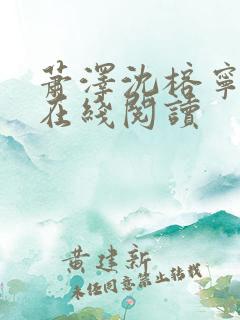 萧澤沈榕寧
在綫閱讀
黄建新
未经同意禁止转载